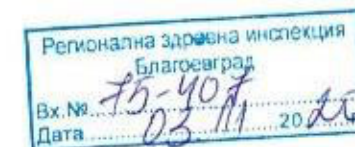 Регионална здравна инспекция
Благоевград
Вх.№ 75-407
Дата 03.III 2020